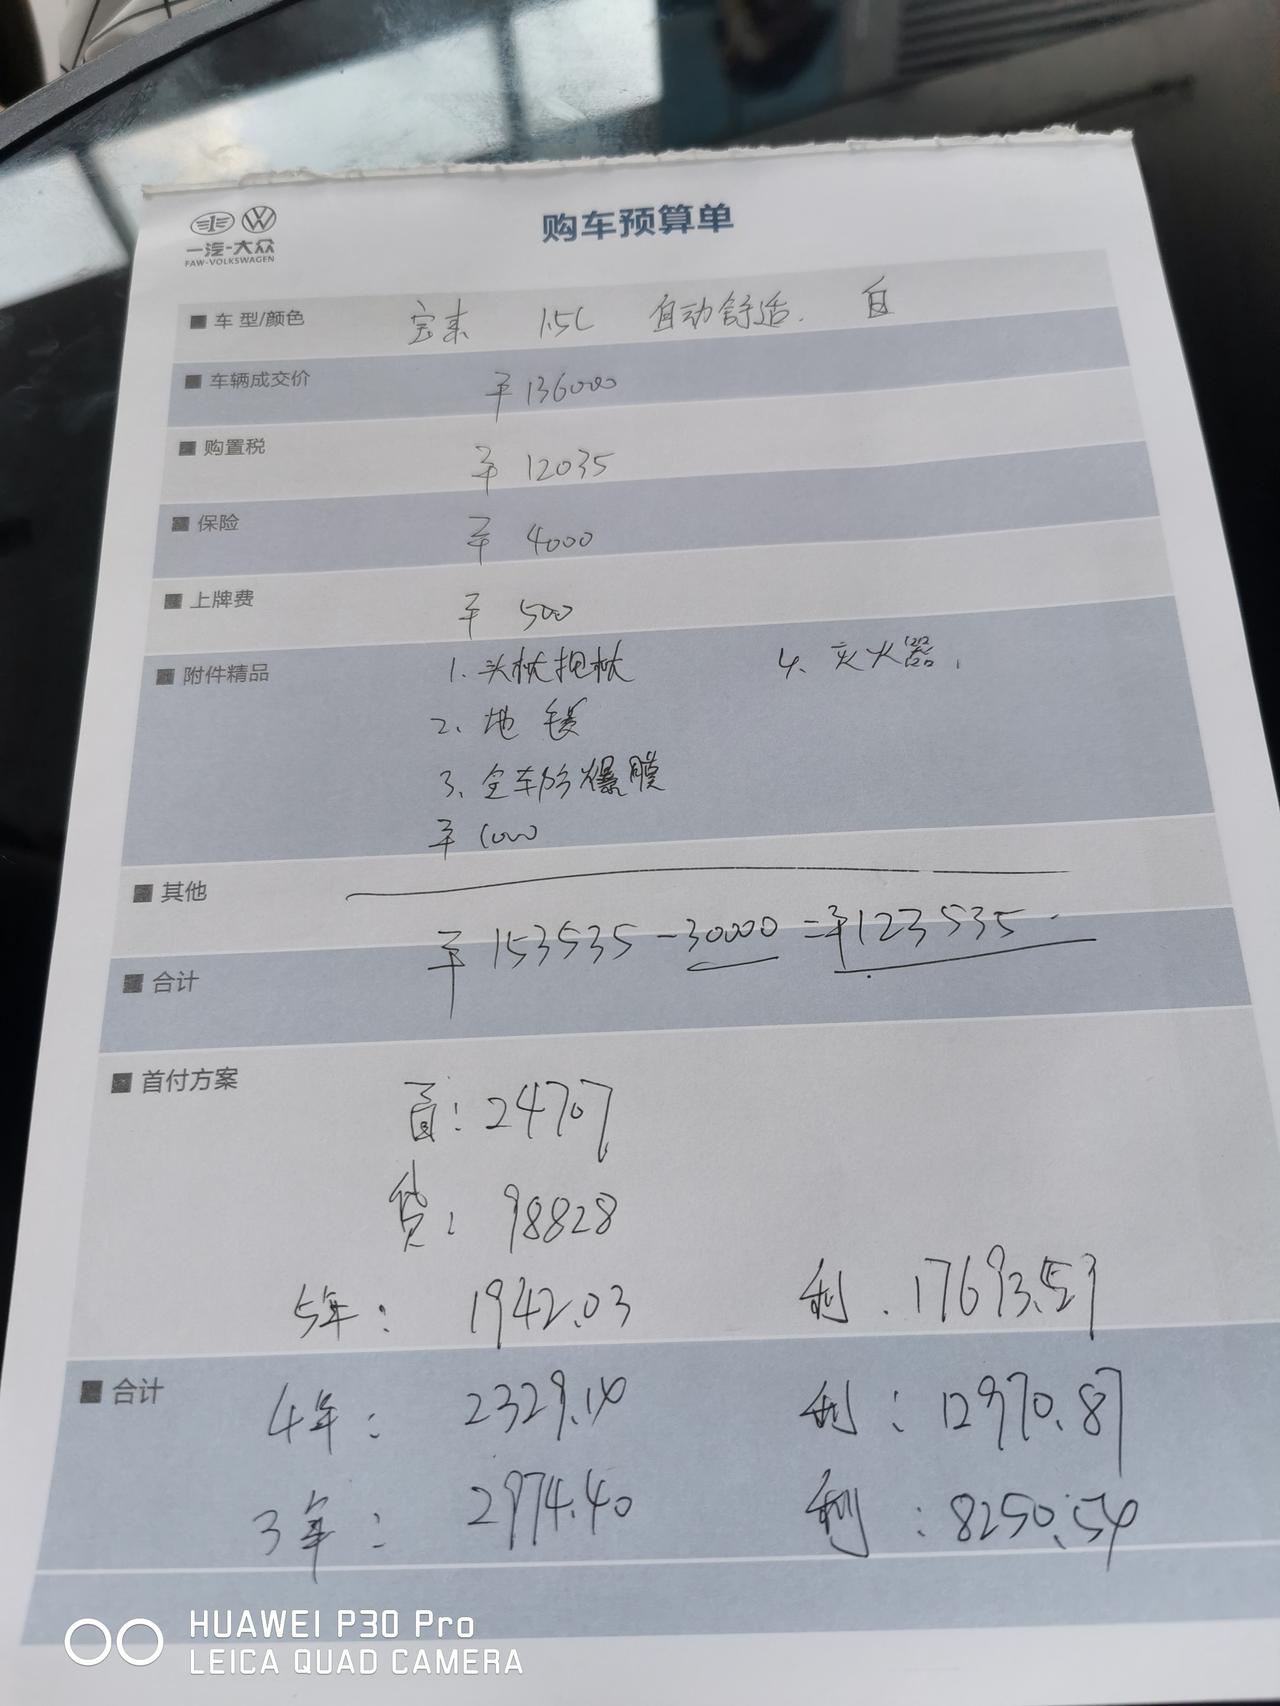 一汽-大众
FAW-VOLKSWAGEN
购车预算单
车型/颜色 宝来 1.5L 自动舒适. 白
车辆成交价 ¥136000
购置税 ¥ 12035
保险 ¥ 4000
上牌费 ¥ 500
附件精品 1.头枕抱枕 4、灭火器.
2、地毯
3、全车防爆膜
¥1000
其他
合计 ¥153535-30000=¥123535.
首付方案 首:24707
贷:98828
5年: 1942.03 利.17693.53
合计 4年: 2329.14 利:12970.87
3年: 2974.40 利:8250.54
HUAWEI P30 Pro
LEICA QUAD CAMERA